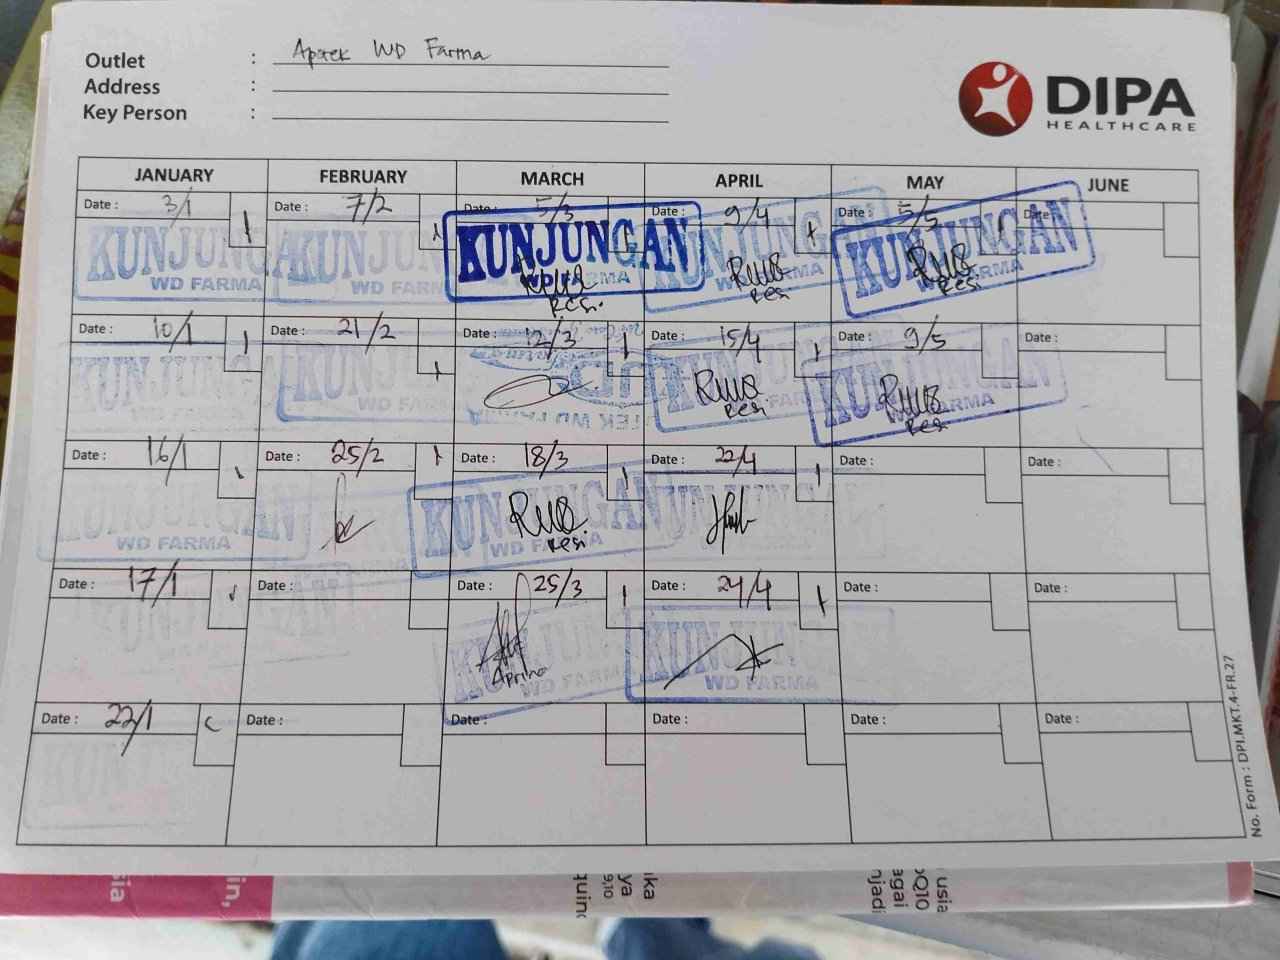 Outlet : Apotek WD Farma
Address :
Key Person :
DIPA
HEALTHCARE
JANUARY FEBRUARY MARCH APRIL MAY JUNE
Date : 3/1 Date : 7/2 Date : 5/3 Date : 9/4 Date : 5/5 Date :
KUNJUNGAN KUNJUNGAN KUNJUNGAN KUNJUNGAN KUNJUNGAN
WD FARMA WD FARMA FARMA WD FARMA FARMA
Resi Resi Resi
Date : 10/1 Date : 21/2 Date : 12/3 Date : 15/4 Date : 9/5 Date :
KUNJUNGAN KUNJUNGAN KUNJUNGAN KUNJUNGAN
WD FARMA WD FARMA FARMA FARMA
Resi Resi
Date : 16/1 Date : 25/2 Date : 18/3 Date : 22/4 Date : Date :
KUNJUNGAN KUNJUNGAN KUNJUNGAN
WD FARMA WD FARMA
Resi
Date : 17/1 Date : Date : 25/3 Date : 24/4 Date : Date :
KUNJUNGAN KUNJUNGAN KUNJUNGAN
Aprina WD FARMA WD FARMA
Date : 22/1 Date : Date : Date : Date : Date :
KUNJUNGAN
No. Form : DPI.MKT.4-FR.27
sia
in,
quin
9,10
ya
ika
njadi
agai
oQ10
usia